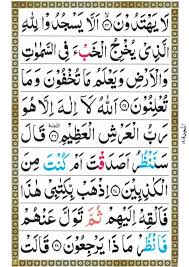 لَا يَهْتَدُوْنَ ۙ﴿۲۴﴾ اَلَّا يَسْجُدُوْا لِلّٰهِ
الَّذِيْ يُخْرِجُ الْخَبْءَ فِي السَّمٰوٰتِ
وَالْاَرْضِ وَيَعْلَمُ مَا تُخْفُوْنَ وَمَا
تُعْلِنُوْنَ ﴿۲۵﴾ اَللّٰهُ لَاۤ اِلٰهَ اِلَّا هُوَ
رَبُّ الْعَرْشِ الْعَظِيْمِ ۩﴿۲۶﴾ قَالَ
سَنَنْظُرُ اَصَدَقْتَ اَمْ كُنْتَ مِنَ
الْكٰذِبِيْنَ ﴿۲۷﴾ اِذْهَبْ بِّكِتٰبِيْ هٰذَا
فَاَلْقِهْ اِلَيْهِمْ ثُمَّ تَوَلَّ عَنْهُمْ
فَانْظُرْ مَاذَا يَرْجِعُوْنَ ﴿۲۸﴾ قَالَتْ